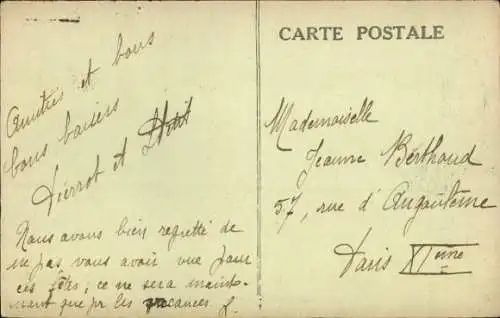 Amitiés et bons
bons baisers
Pierrot et
Nous avons bien regretté de
ne pas vous avoir vue pour
ces fêtes; ce ne sera mainte-
nant que pr les vacances.
CARTE POSTALE
Mademoiselle
Jeanne Berthoud
57, rue d'Angoulème
Paris XIème